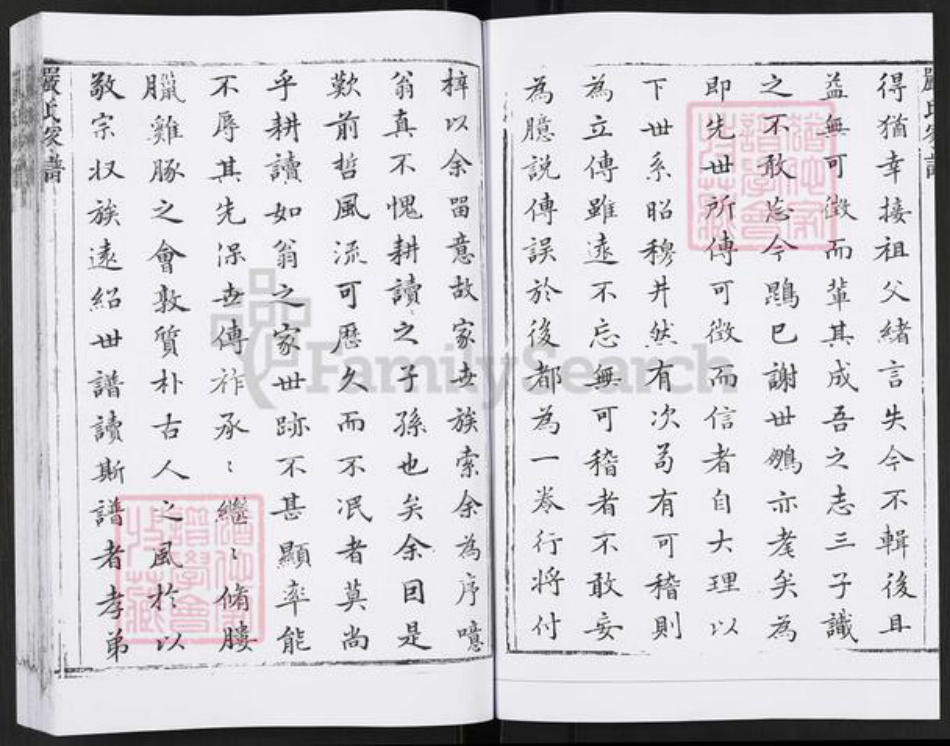 得猶幸接祖父緒言失今不輯後且
益無可徵而輩其成吾之志三子識
之不敢忘今鵾已謝世鵷亦耄矣為
即先世所傳可徵而信者自大理以
下世系昭穆井然有次苟有可稽則
為立傳雖遠不忘無可稽者不敢妄
為臆説傳誤於後都為一卷行将付
梓以余留意故家世族索余為序噫
翁真不愧耕讀之子孫也矣余因是
歎前哲風流可歷久而不泯者莫尚
乎耕讀如翁之家世跡不甚顯率能
不辱其先深世傳祚承〻繼〻脩膢
臘雞豚之會敦質朴古人之風於以
敬宗収族遠紹世譜讀斯譜者孝弟
嚴氏家譜
FamilySearch